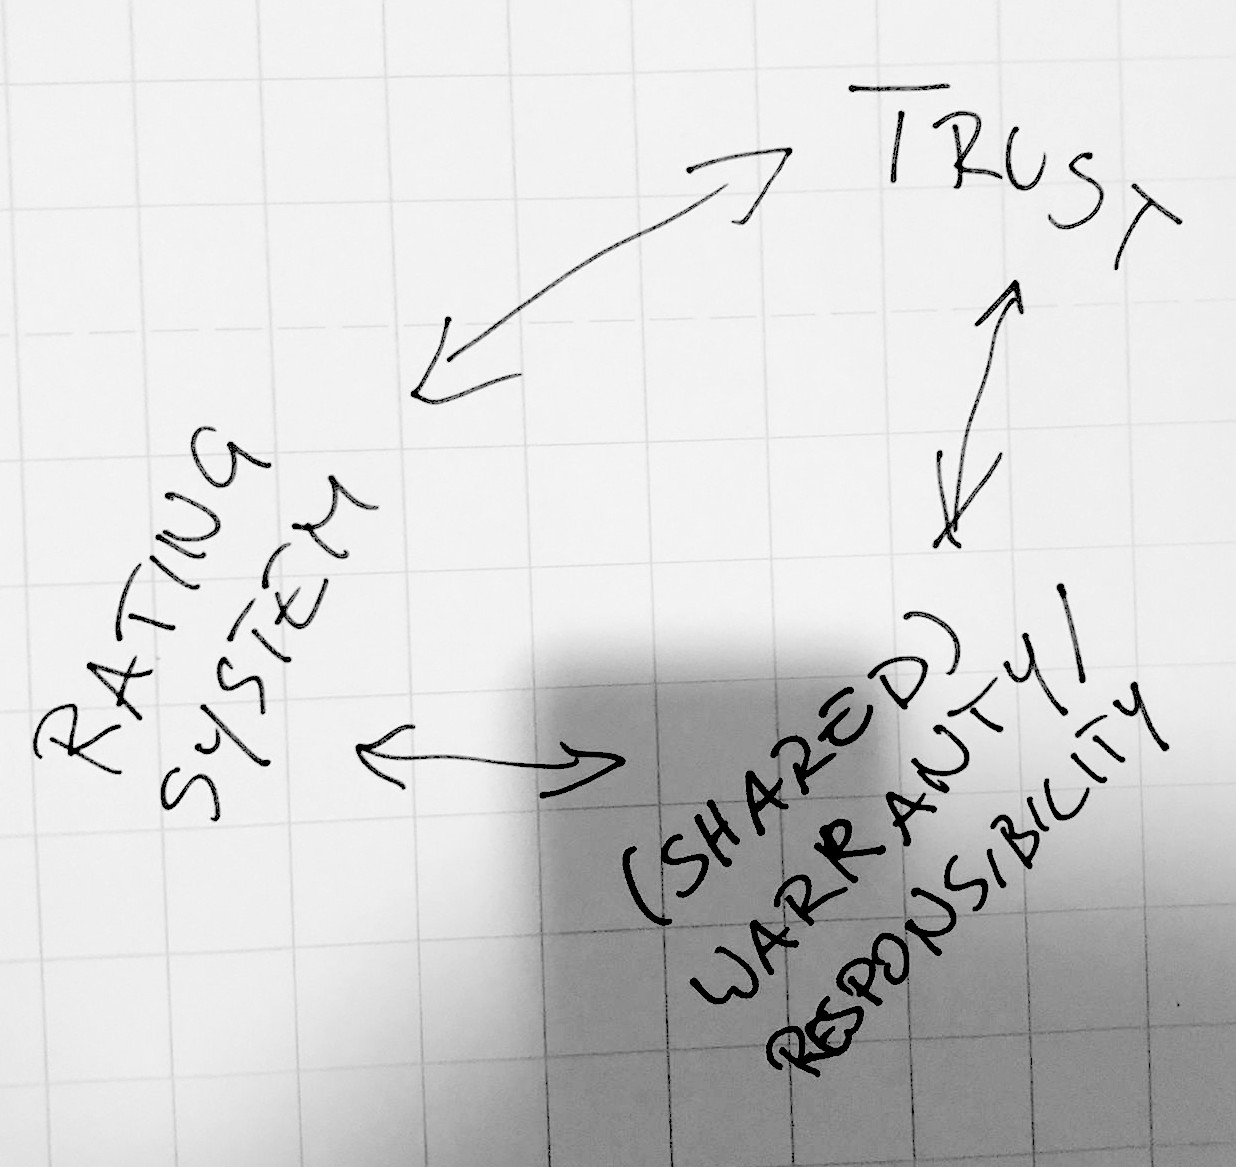 TRUST
RATING
SYSTEM
(SHARED)
WARRANTY/
RESPONSIBILITY